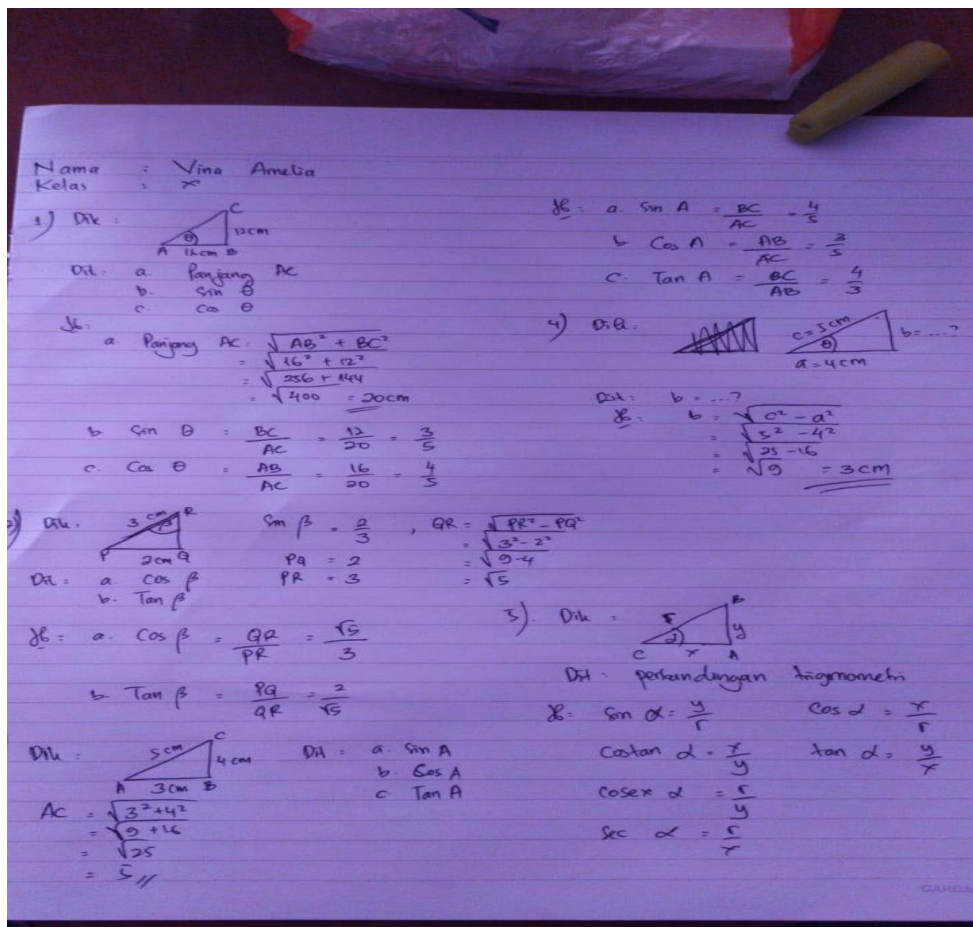 Nama : Vina Amelia
Kelas : X
1) Dik :
C
θ
12cm
A 16cm B
Dit : a. Panjang AC
b. Sin θ
c. Cos θ
Jb :
a. Panjang AC : √AB² + BC²
= √16² + 12²
= √256 + 144
= √400 = 20cm
b Sin θ = BC/AC = 12/20 = 3/5
c. Cos θ = AB/AC = 16/20 = 4/5
2) Dik .
3 cm R
β
P 2cm Q
Sin β = 2/3 , QR = √PR² - PQ²
PQ = 2
PR = 3
= √3² - 2²
= √9 - 4
= √5
Dit = a. cos β
b. Tan β
Jb = a. Cos β = QR/PR = √5/3
b. Tan β = PQ/QR = 2/√5
Dik :
5cm C
4 cm
A 3cm B
Dit : a. Sin A
b. Cos A
c. Tan A
AC = √3²+4²
= √9 + 16
= √25
= 5 //
Jb : a. Sin A = BC/AC = 4/5
b Cos A = AB/AC = 3/5
c. Tan A = BC/AB = 4/3
4) Dik.
c = 5cm
θ
b = ...?
a = 4cm
Dit : b = ...?
Jb : b = √c² - a²
= √5² - 4²
= √25 - 16
= √9 = 3 cm
5). Dik =
B
r
α
y
C x A
Dit : perbandingan trigonometri
Jb : Sin α = y/r Cos α = x/r
Costan α = x/y tan α = y/x
Cosex α = r/y
Sec α = r/x